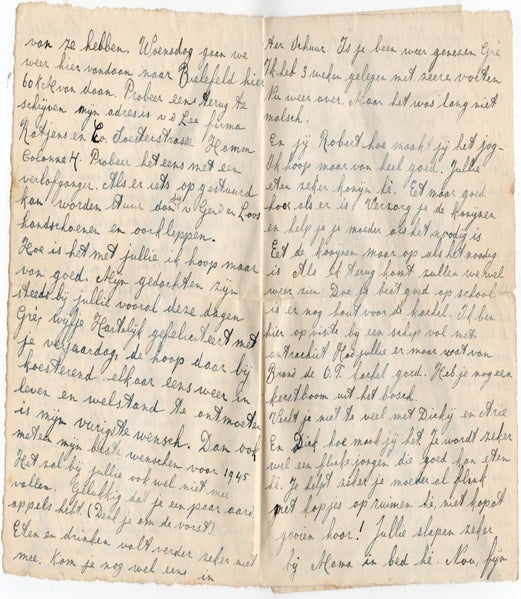 van ze hebben. Woensdag gaan we
weer hier vandaan naar Bielefeld hier
60 k.M. van daan. Probeer eens terug te
schrijven mijn adres is v d Zee firma
Rötjens en Co. Soesterstrasse Hamm
Colonne 4. Probeer het eens met een
verlofganger. Als er iets opgestuurd
kan worden stuur dan die v Gerd en Loos
handschoenen en oorkleppen.
Hoe is het met jullie ik hoop maar
van goed. Mijn gedachten zijn
steeds bij jullie vooral deze dagen
Gré, wijfje Hartelijk gefeliciteerd met
je verjaardag, de hoop daar bij
koesterend elkaar eens weer in
leven en welstand te ontmoeten
is mijn vurigste wensch. Dan ook
meteen mijn beste wenschen voor 1945
Het zal bij jullie ook wel niet mee
vallen. Gelukkig dat je een paar aard
appels hebt (Denk je om de vorst)
Eten en drinken valt verder zeker niet
mee. Kom je nog wel eens in
ter Schuur. Is je been weer genezen Gré
Ik heb 3 weken gelegen met zeere voeten
Nu weer over. Maar het was lang niet
malsch.
En jij Robert hoe maakt jij het jog.
Ik hoop maar van heel goed. Jullie
eten zeker konijn hé. Eet maar goed
hoor als er is Verzorg je de konijnen
en help je je moeder als het noodig is
Eet de konijnen maar op als het noodig
is Als ik terug komt zullen we wel
weer zien Doe je best goed op school
is er nog hout voor de kachel. Ik ben
hier op visite bij een schip vol met
antrachiet Had jullie er maar wat van
Brand de O.T. kachel goed. Heb je nog een
kerstboom uit het bosch.
Vecht je niet te veel met Dicky en Arie
En Dick hoe maak jij het Je wordt zeker
wel een flinke jongen die goed kan eten
hé. Je helpt zeker je moeder al flink
met kopjes op ruimen hé, niet kapot
gooien hoor! Jullie slapen zeker
bij Mama in bed hé. Nou, fijn